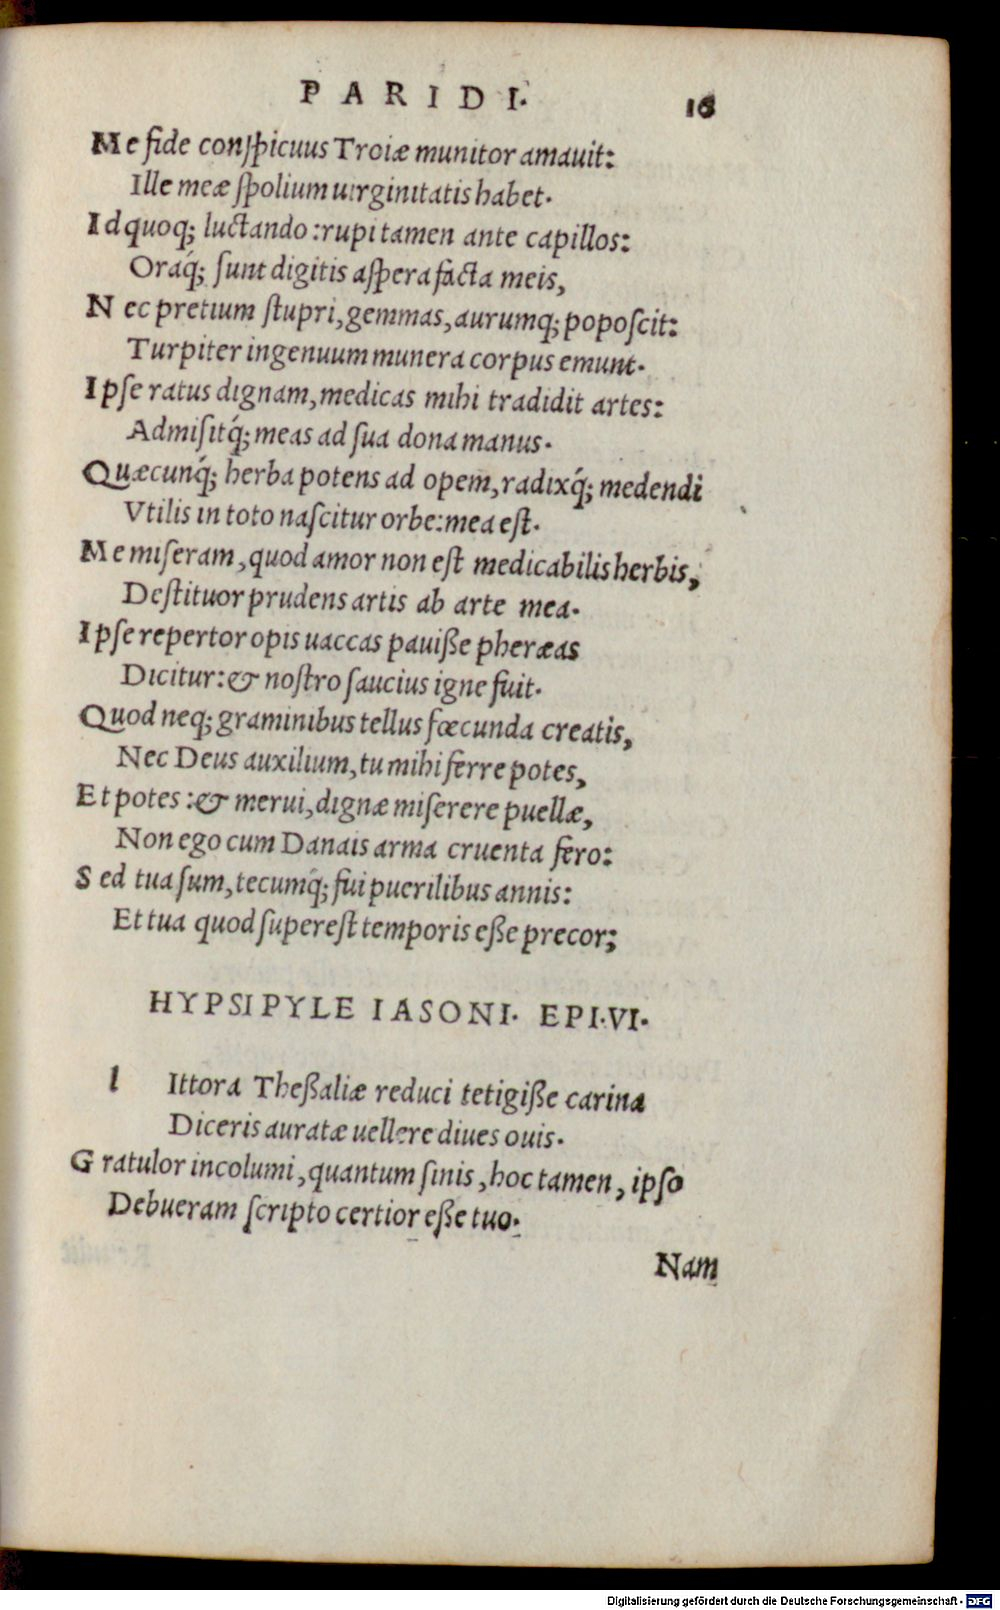 PARIDI. 16
Me fide conſpicuus Troiæ munitor amauit:
Ille meæ ſpolium uirginitatis habet.
Id quoq; luctando: rupi tamen ante capillos:
Oraq́; ſunt digitis aſpera facta meis,
Nec pretium ſtupri, gemmas, aurumq; popoſcit:
Turpiter ingenuum munera corpus emunt.
Ipſe ratus dignam, medicas mihi tradidit artes:
Admiſitq́; meas ad ſua dona manus.
Quæcunq́; herba potens ad opem, radixq́; medendi
Vtilis in toto naſcitur orbe: mea eſt.
Me miſeram, quod amor non eſt medicabilis herbis,
Deſtituor prudens artis ab arte mea.
Ipſe repertor opis uaccas pauiße pheræas
Dicitur: & noſtro ſaucius igne fuit.
Quod neq; graminibus tellus fœcunda creatis,
Nec Deus auxilium, tu mihi ferre potes,
Et potes: & merui, dignæ miſerere puellæ,
Non ego cum Danais arma cruenta fero:
Sed tua ſum, tecumq́; fui puerilibus annis:
Et tua quod ſupereſt temporis eße precor;
HYPSIPYLE IASONI. EPI.VI.
l Ittora Theßaliæ reduci tetigiße carina
Diceris auratæ uellere diues ouis.
Gratulor incolumi, quantum ſinis, hoc tamen, ipſo
Debueram ſcripto certior eße tuo.
Nam
Digitalisierung gefördert durch die Deutsche Forschungsgemeinschaft - DFG